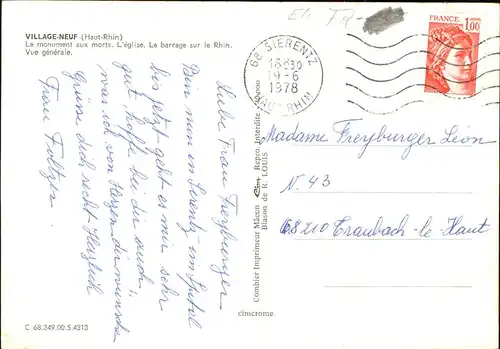 VILLAGE-NEUF (Haut-Rhin)
Le monument aux morts. L'église. Le barrage sur le Rhin.
Vue générale.
Liebe Frau Freyburger
Bin nun in Serentz im Spital
bis jetzt geht es mir sehr
gut hoffe bei dir auch.
was ich von Herzen dir wünsche
Grüse dich recht Herzlich
Frau Foltzer
C 68.349.00.5.4313
Combier Imprimeur Mâcon Cim Repro. Interdite
Blason de R. LOUIS
cimcrome
68 SIERENTZ
18H30
19-6
1978
HAUT-RHIN
FRANCE
1,00
Madame Freyburger Léon
N. 43
68210 Traubach-le Haut